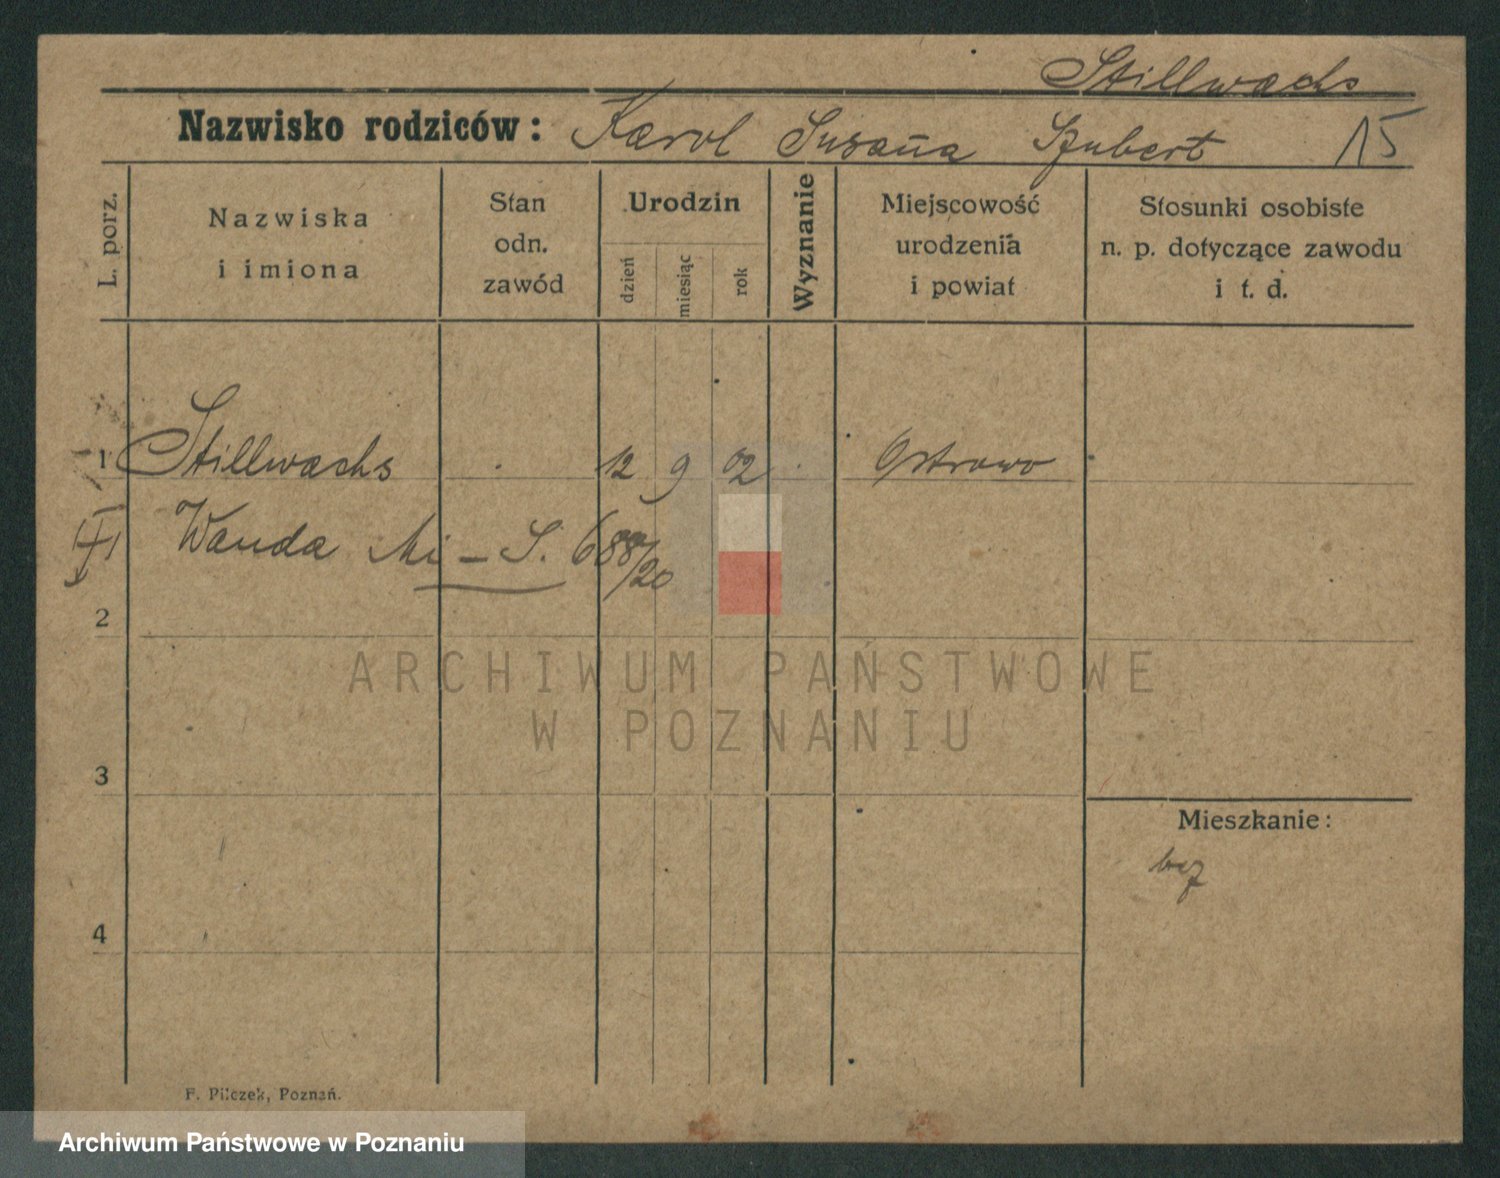 Stillwachs
Nazwisko rodziców: Karol Susanna Szubert 15
L. porz.
Nazwiska
i imiona
Stan
odn.
zawód
Urodzin
dzień
miesiąc
rok
Wyznanie
Miejscowość
urodzenia
i powiat
Stosunki osobiste
n. p. dotyczące zawodu
i t. d.
1 Stillwachs 12 9 02 Ostrowo
Wanda Mi - S. 688/20
2
ARCHIWUM PAŃSTWOWE
W POZNANIU
3
Mieszkanie:
bez
4
F. Pilczek, Poznań.
Archiwum Państwowe w Poznaniu